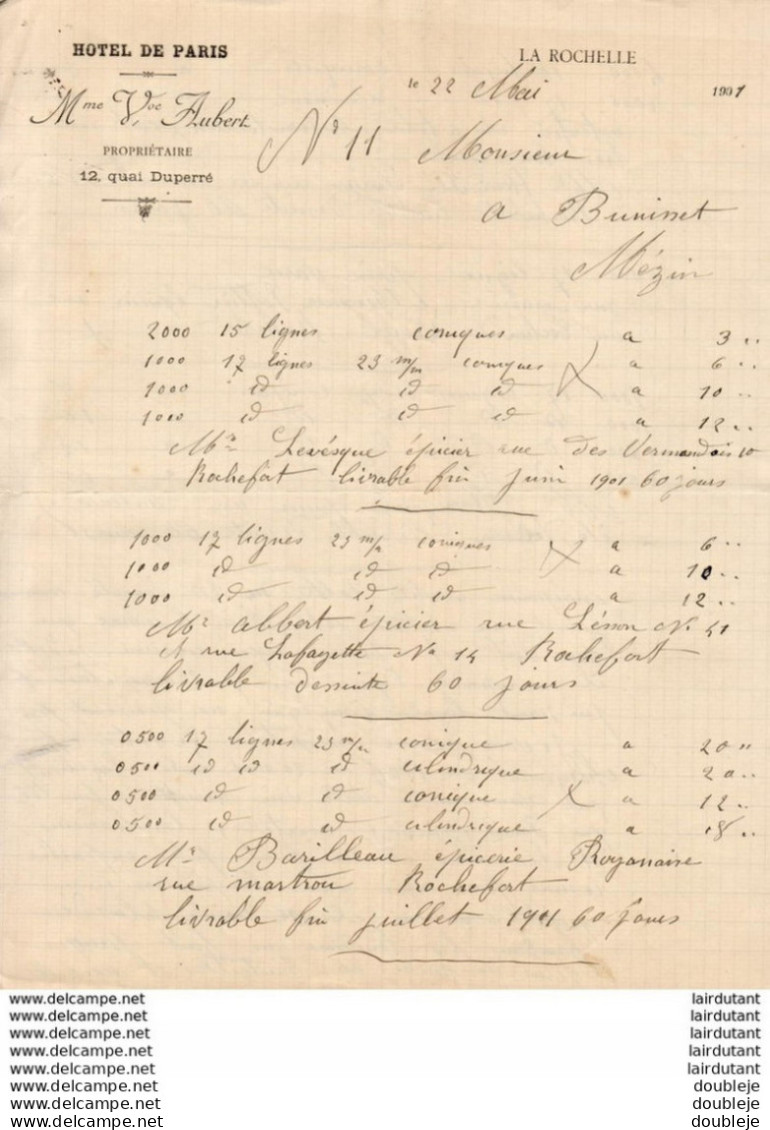 HOTEL DE PARIS
LA ROCHELLE
le 22 Mai 1901
Mme Vve Aubert
PROPRIÉTAIRE
12, quai Duperré
No 11 Monsieur
a Buninet
Mézin
2000 15 lignes coniques a 3 "
1000 17 lignes 23 m/m coniques a 6 "
1000 id id id a 10 "
1000 id id id a 12 "
Mr Levésque épicier rue des Vermandois 10
Rochefort livrable fin Juin 1901 60 jours
1000 17 lignes 23 m/m coniques a 6 "
1000 id id id a 10 "
1000 id id id a 12 "
Mr Abbert épicier rue Lesson No 51
& rue Lafayette No 14 Rochefort
livrable dessuite 60 jours
0500 17 lignes 23 m/m conique a 20 "
0500 id id id cilindrique a 20 "
0500 id id conique a 12 "
0500 id id cilindrique a 18 "
Mr Barilleau épicerie Royanaise
rue martrou Rochefort
livrable fin juillet 1901 60 jours
www.delcampe.net lairdutant
www.delcampe.net lairdutant
www.delcampe.net lairdutant
www.delcampe.net lairdutant
www.delcampe.net lairdutant
www.delcampe.net doubleje
www.delcampe.net doubleje
www.delcampe.net doubleje